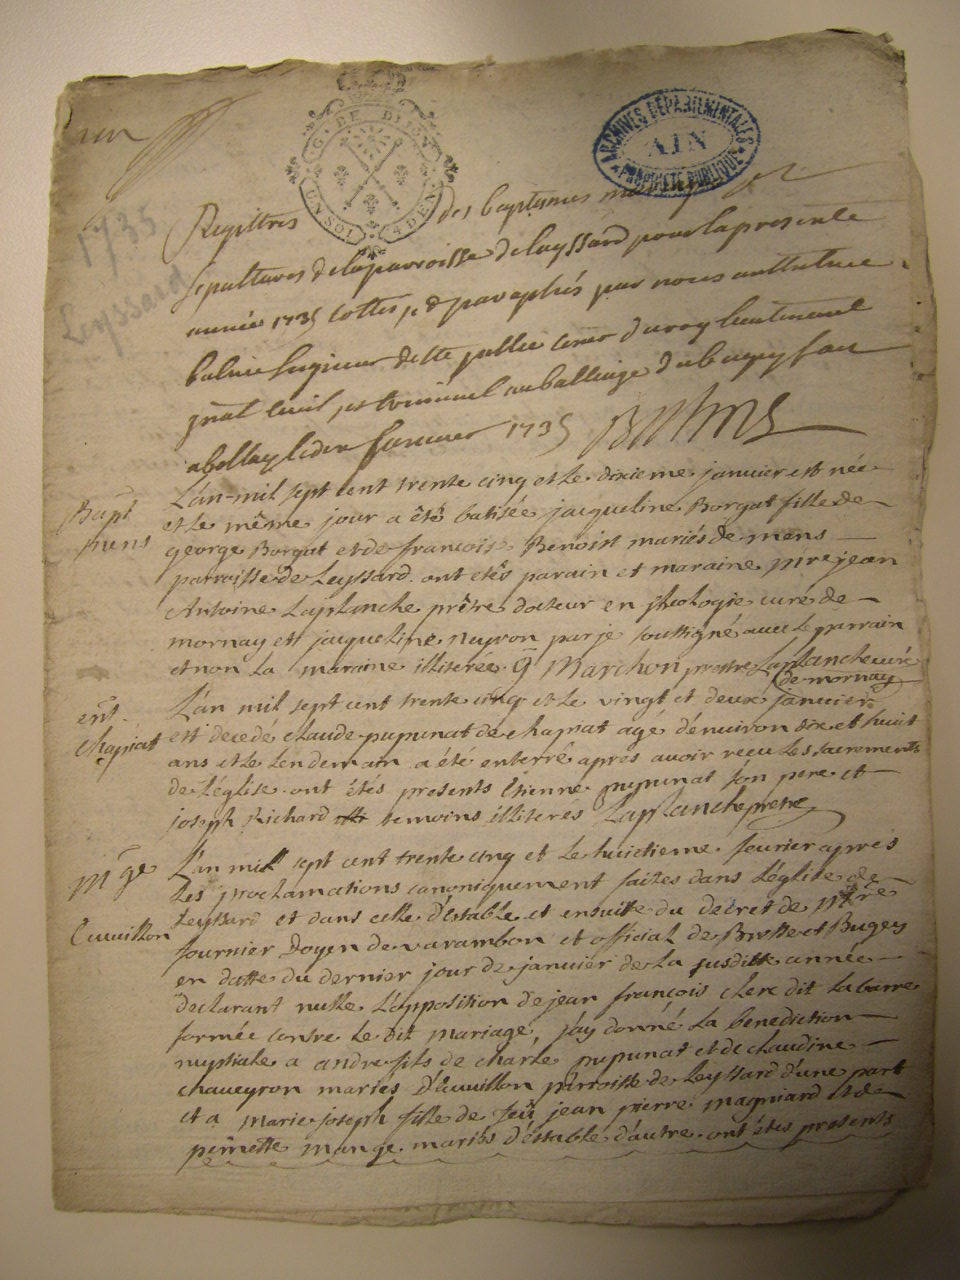 un
G. DE DIJON
UN SOL 4 DEN
ARCHIVES DÉPARTEMENTALES
AIN
PROPRIÉTÉ PUBLIQUE
1735
Leyssard
Regittres des baptemes
sepultures de la parroisse de layssard pour la presente
année 1735 cottes, et paraphés par nous anthelme
balme seigneur de ste jullie coner du roy lieutenent
gnal civil, et criminel au balliage du bugey
a bellay le janvier 1735 Balme
Bapt
mens
L'an mil sept cent trente cinq et le dixieme janvier est née
et le même jour a été batisée jacqueline Borgat fille de
george Borgat et de francoise Benoist mariés de mens
parroisse de Leyssard. ont etés parain et maraine mre jean
Antoine Laplanche prêtre docteur en theologie curé de
mornay et jacqueline nugron par je soussigné avec le parrain
et non la maraine illiterée. G Marchon prestre Laplanche curé
de mornay
ent.
chapiat
L'an mil sept cent trente cinq et le vingt et deux janvier
est decedé claude pupunat de chapiat agé d'environ dix et huit
ans et le lendemain a été enterré apres avoir reçu les sacrements
de l'église. ont étés presents Etienne pupunat son pere et
joseph Richard temoins illiterés Laplanche pretre
mge
Cuvillon
L'an mil sept cent trente cinq et le huictieme fevrier apres
les proclamations canoniquement faites dans l'église de
Leyssard et dans celle d'estable et ensuitte du decret de
fournier Doyen de varambon et official de Bresse et Bugey
en datte du dernier jour de janvier de la susditte année
declarant nulle l'opposition de jean françois clerc dit la barre
formée contre le dit mariage, j'ay donné la benediction
nuptiale a andre fils de charle pupunat et de claudine
chaveyron mariés d'Cuvillon parroisse de Leyssard d'une part
et a marie joseph fille de feü jean pierre magniard et de
pernette mange mariés d'estable d'autre. ont étés presents